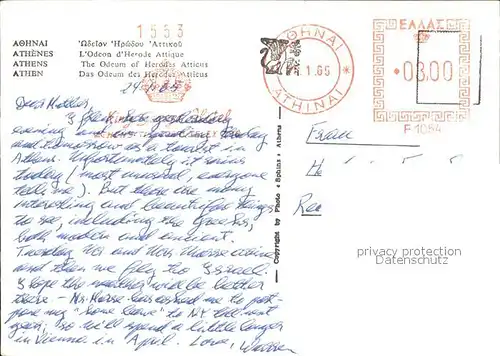 1553
ΑΘΗΝΑΙ Ὠδεῖον Ἡρώδου Ἀττικοῦ
ATHÈNES L'Odéon d'Hérode Attique
ATHENS The Odeum of Herodes Atticus
ATHEN Das Odeum des Herodes Atticus
ΑΘΗΝΑΙ
1.65
ATHINAI
ΕΛΛΑΣ
0300
F 1084
Dear Mother,
I flew here yesterday
evening and am spending today
and tomorrow as a tourist in
Athens. Unfortunately it rains
today (most unusual, everyone
tells me). But there are many
interesting and beautiful things
to see, including the Greeks,
both modern and ancient.
Tuesday Mr and Mrs Morse arrive
and then we fly to Israel.
I hope the weather will be better
there – Mr. Morse has asked me to post-
pone my "home leave" to NY till next
year, so we'll spend a little longer
in Vienna in April. Love, Warren
Copyright by Photo «Sphinx» Athens
Frau
He
privacy protection
www.akpool.de